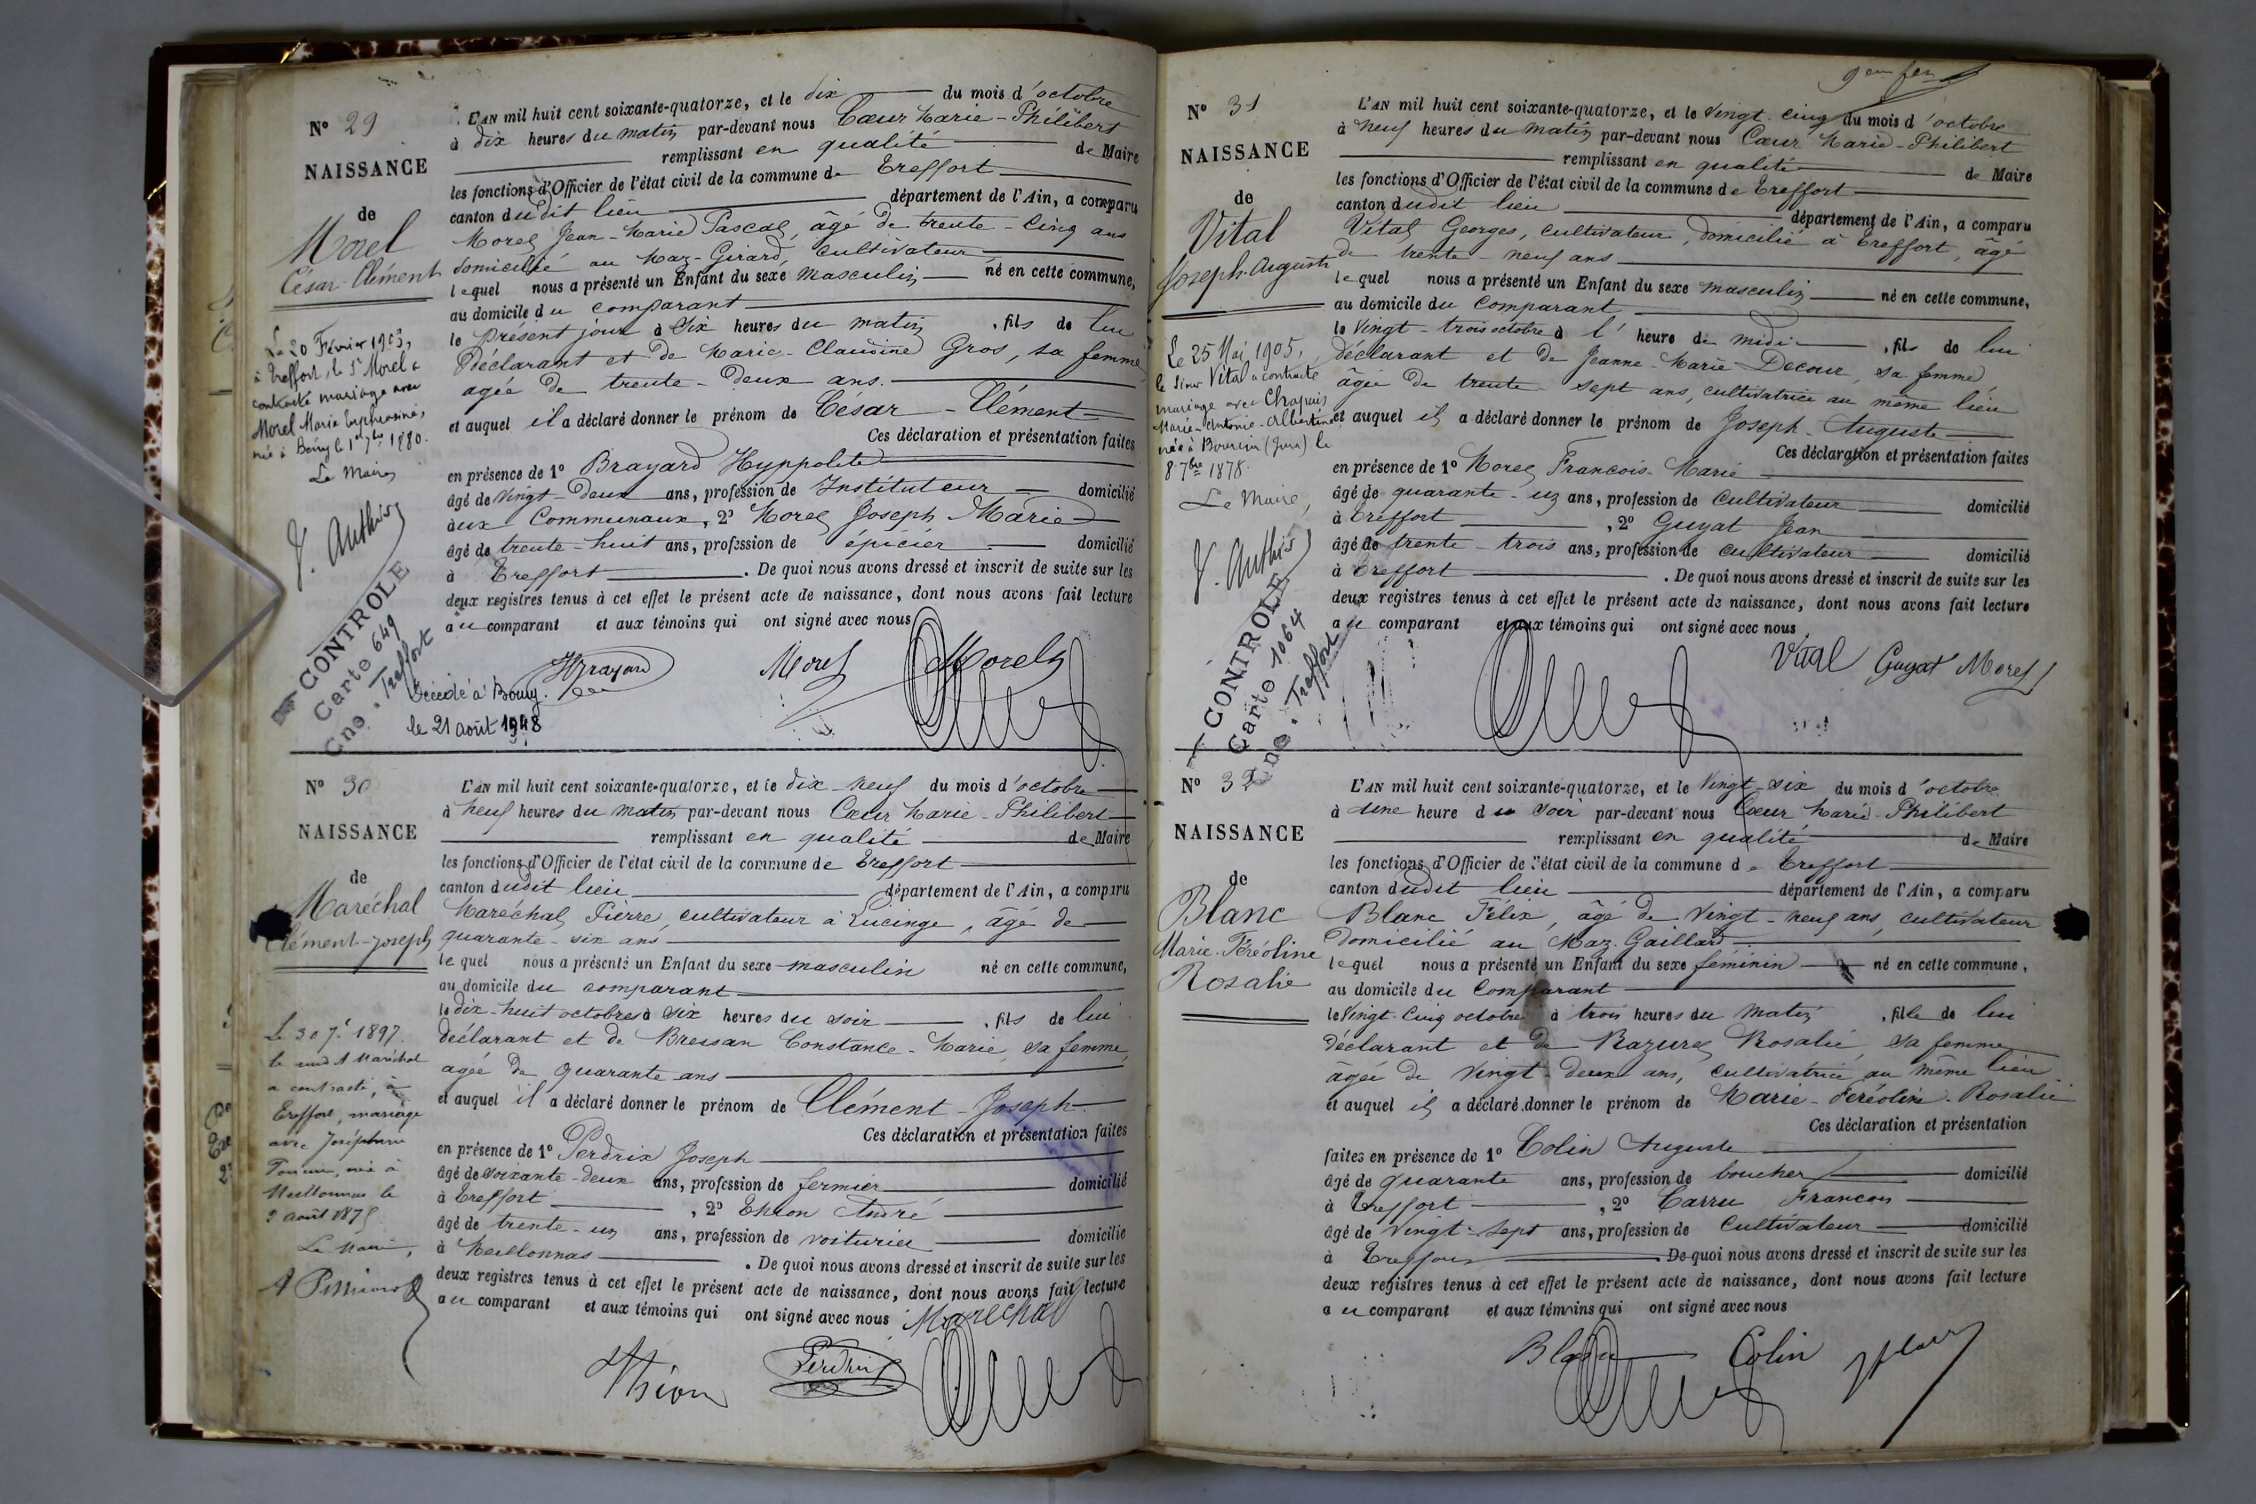 Nº 29
NAISSANCE
de
Morel
César-Clément
Le 20 Février 1903,
à Treffort, le Sr Morel a
contracté mariage avec
Morel Marie Euphrosine,
née à Bourg le 1er 7bre 1880.
Le Maire
J. Authier
CONTROLE
Carte 649
Cne . Treffort
L'AN mil huit cent soixante-quatorze, et le dix du mois d'octobre
à dix heures du matin par-devant nous Cœur Marie-Philibert
remplissant en qualité de Maire
les fonctions d'Officier de l'état civil de la commune de Treffort
canton dudit lieu département de l'Ain, a comparu
Morel Jean-Marie Pascal, âgé de trente-cinq ans
domicilié au Maz-Girard, cultivateur
lequel nous a présenté un Enfant du sexe masculin né en cette commune,
au domicile du comparant
le présent jour à six heures du matin, fils de lui
déclarant et de Marie-Claudine Gros, sa femme
agée de trente-deux ans.
et auquel il a déclaré donner le prénom de César-Clément
Ces déclaration et présentation faites
en présence de 1º Brayard Hyppolite
âgé de vingt-deux ans, profession de Instituteur domicilié
aux Communaux, 2º Morel Joseph Marie
âgé de trente-huit ans, profession de épicier domicilié
à Treffort. De quoi nous avons dressé et inscrit de suite sur les
deux registres tenus à cet effet le présent acte de naissance, dont nous avons fait lecture
au comparant et aux témoins qui ont signé avec nous
HBrayard Morel Morel
Décédé à Bourg.
le 21 août 1948
Nº 30
NAISSANCE
de
Maréchal
Clément-Joseph
Le 30 7e 1897
le Maréchal
a contracté, à
Treffort, mariage
avec Joséphine
née à
Meillonnas le
août 187
Le Maire,
L'AN mil huit cent soixante-quatorze, et le dix-neuf du mois d'octobre
à neuf heures du matin par-devant nous Cœur Marie-Philibert
remplissant en qualité de Maire
les fonctions d'Officier de l'état civil de la commune de Treffort
canton dudit lieu département de l'Ain, a comparu
Maréchal Pierre cultivateur à Lucinge, âgé de
quarante-six ans
lequel nous a présenté un Enfant du sexe masculin né en cette commune,
au domicile du comparant
le dix-huit octobre à six heures du soir, fils de lui
déclarant et de Bressan Constance-Marie, sa femme,
agée de quarante ans
et auquel il a déclaré donner le prénom de Clément-Joseph
Ces déclaration et présentation faites
en présence de 1º Perdrix Joseph
âgé de soixante-deux ans, profession de fermier domicilié
à Treffort, 2º Thion André
âgé de trente-un ans, profession de voiturier domicilié
à Meillonnas. De quoi nous avons dressé et inscrit de suite sur les
deux registres tenus à cet effet le présent acte de naissance, dont nous avons fait lecture
au comparant et aux témoins qui ont signé avec nous Maréchal
Thion Perdrix
Nº 31
NAISSANCE
de
Vital
Joseph-Auguste
Le 25 Mai 1905,
le sieur Vital a contracté
mariage avec Chapuis
Marie-Antonie-Albertine
née à Bourcia (Jura) le
8 7bre 1878.
Le Maire,
J. Authier
CONTROLE
Carte 1064
Cne . Treffort
L'AN mil huit cent soixante-quatorze, et le vingt-cinq du mois d'octobre
à neuf heures du matin par-devant nous Cœur Marie-Philibert
remplissant en qualité de Maire
les fonctions d'Officier de l'état civil de la commune de Treffort
canton dudit lieu département de l'Ain, a comparu
Vital Georges, cultivateur, domicilié à Treffort, âgé
de trente-neuf ans
lequel nous a présenté un Enfant du sexe masculin né en cette commune,
au domicile du comparant
le vingt-trois octobre à l'heure de midi, fils de lui
déclarant et de Jeanne-Marie Decour, sa femme,
âgée de trente-sept ans, cultivatrice au même lieu
et auquel il a déclaré donner le prénom de Joseph-Auguste
Ces déclaration et présentation faites
en présence de 1º Morel François-Marie
âgé de quarante-un ans, profession de cultivateur domicilié
à Treffort, 2º Guyat Jean
âgé de trente-trois ans, profession de cultivateur domicilié
à Treffort. De quoi nous avons dressé et inscrit de suite sur les
deux registres tenus à cet effet le présent acte de naissance, dont nous avons fait lecture
au comparant et aux témoins qui ont signé avec nous
Vital Guyat Morel
Nº 32
NAISSANCE
de
Blanc
Marie-Féréoline
Rosalie
L'AN mil huit cent soixante-quatorze, et le vingt-six du mois d'octobre
à une heure du soir par-devant nous Cœur Marie-Philibert
remplissant en qualité de Maire
les fonctions d'Officier de l'état civil de la commune de Treffort
canton dudit lieu département de l'Ain, a comparu
Blanc Félix, âgé de vingt-neuf ans, cultivateur
domicilié au Maz-Gaillard
lequel nous a présenté un Enfant du sexe féminin né en cette commune,
au domicile du comparant
le vingt-cinq octobre à trois heures du matin, fille de lui
déclarant et de Razurel Rosalie, sa femme
âgée de vingt-deux ans, cultivatrice au même lieu
et auquel il a déclaré donner le prénom de Marie-Féréoline-Rosalie
Ces déclaration et présentation
faites en présence de 1º Colin Auguste
âgé de quarante ans, profession de boucher domicilié
à Treffort, 2º Carru François
âgé de vingt-sept ans, profession de cultivateur domicilié
à Treffort De quoi nous avons dressé et inscrit de suite sur les
deux registres tenus à cet effet le présent acte de naissance, dont nous avons fait lecture
au comparant et aux témoins qui ont signé avec nous
Blanc Colin